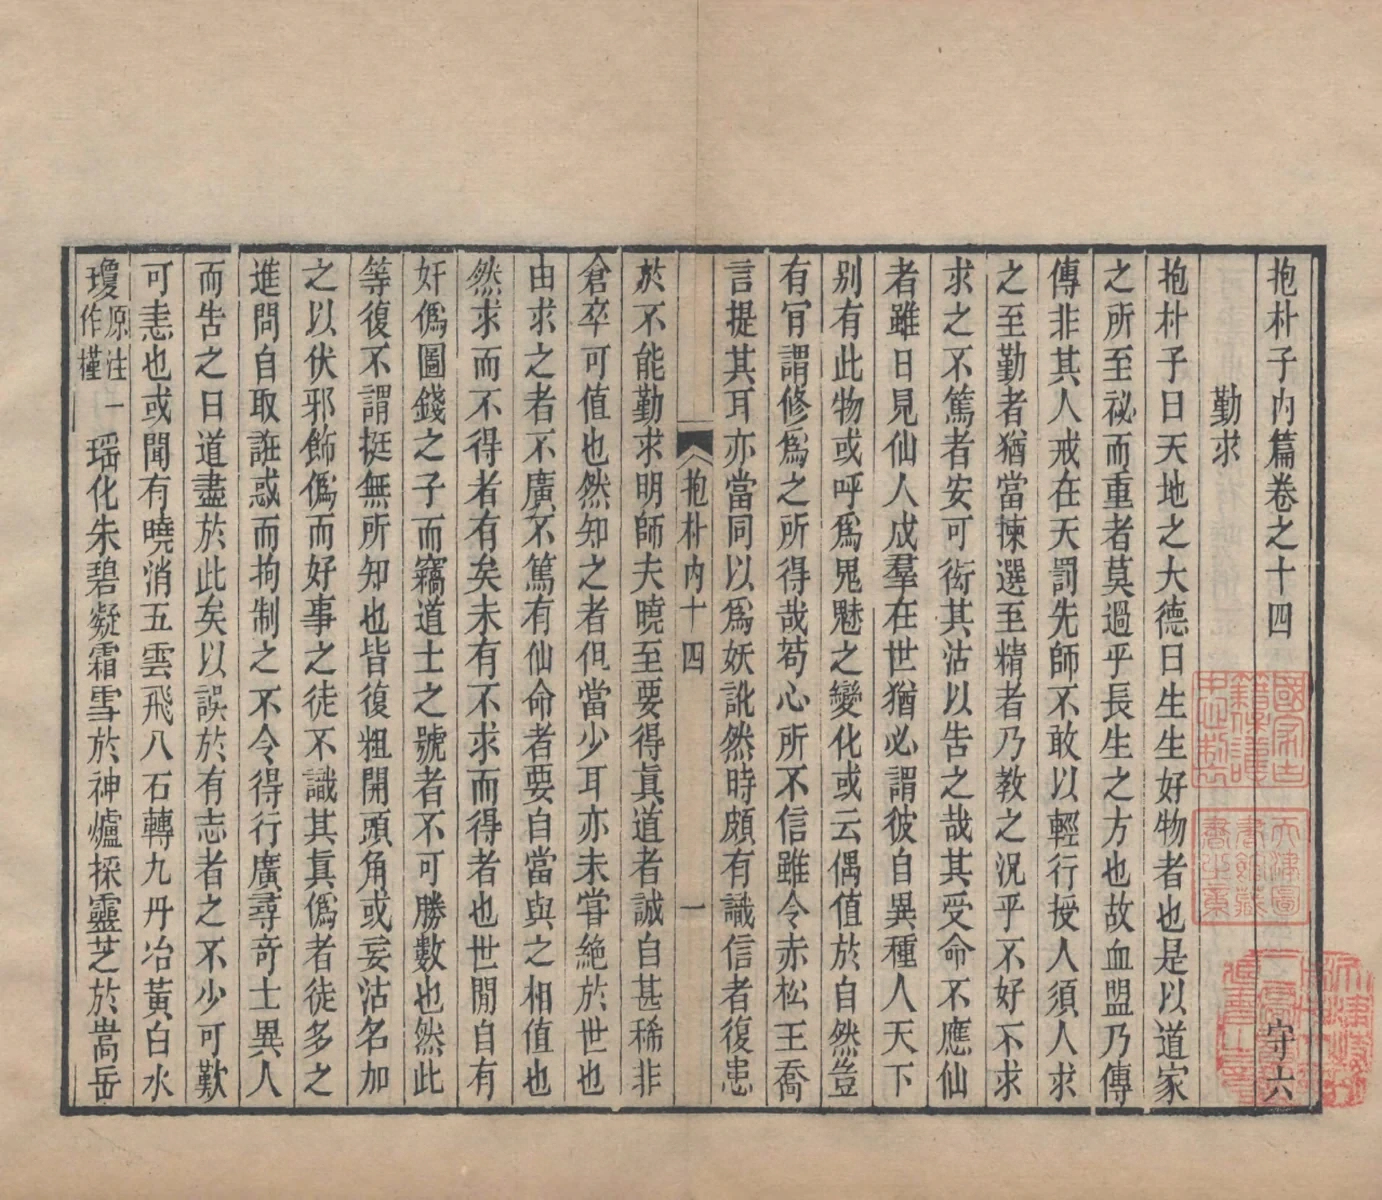 抱朴子內篇卷之十四　守六
勤求
抱朴子曰天地之大德曰生生好物者也是以道家
之所至祕而重者莫過乎長生之方也故血盟乃傳
傳非其人戒在天罰先師不敢以輕行授人須人求
之至勤者猶當揀選至精者乃教之況乎不好不求
求之不篤者安可衒其沽以告之哉其受命不應仙
者雖日見仙人成羣在世猶必謂彼自異種人天下
別有此物或呼爲鬼魅之變化或云偶值於自然豈
有肎謂修爲之所得哉苟心所不信雖令赤松王喬
言提其耳亦當同以爲妖訛然時頗有識信者復患
抱朴內十四　一
於不能勤求明師夫曉至要得眞道者誠自甚稀非
倉卒可值也然知之者但當少耳亦未嘗絶於世也
由求之者不廣不篤有仙命者要自當與之相值也
然求而不得者有矣未有不求而得者也世閒自有
奸僞圖錢之子而竊道士之號者不可勝數也然此
等復不謂挺無所知也皆復粗開頭角或妄沽名加
之以伏邪飾僞而好事之徒不識其眞僞者徒多之
進問自取誑惑而拘制之不令得行廣尋奇士異人
而告之曰道盡於此矣以誤於有志者之不少可歎
可恚也或聞有曉消五雲飛八石轉九丹冶黃白水
瓊原注一作瑾瑶化朱碧凝霜雪於神爐採靈芝於嵩岳
天津圖書館藏書之章